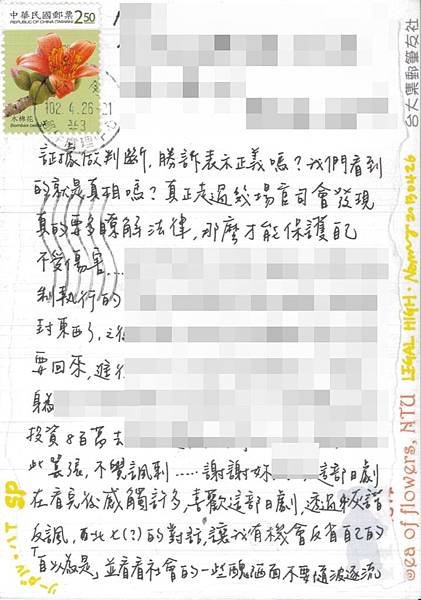 中華民國郵票 2.50
REPUBLIC OF CHINA (TAIWAN)
木棉花
102.4.26.21
證據做判斷，勝訴表示正義嗎？我們看到
的就是真相嗎？真正走過幾場官司會發現
真的要多瞭解法律，那麼才能保護自己
不受傷害....
制執行的
封東西了，之後
要回來，
躬
投資8百萬去
此囂張，不覺諷刺.....謝謝妳 這部日劇
在看完後感觸許多，喜歡這部日劇，透過灰諧
反諷，古北七(?)的對話，讓我有機會反省自己的
自以為是，並看看社會的一些醜陋面不要隨波逐流
台大票郵筆友社
LEGAL HIGH · Nanny 20130426
@ea of flowers, NTU
リーガル・ハイ SP